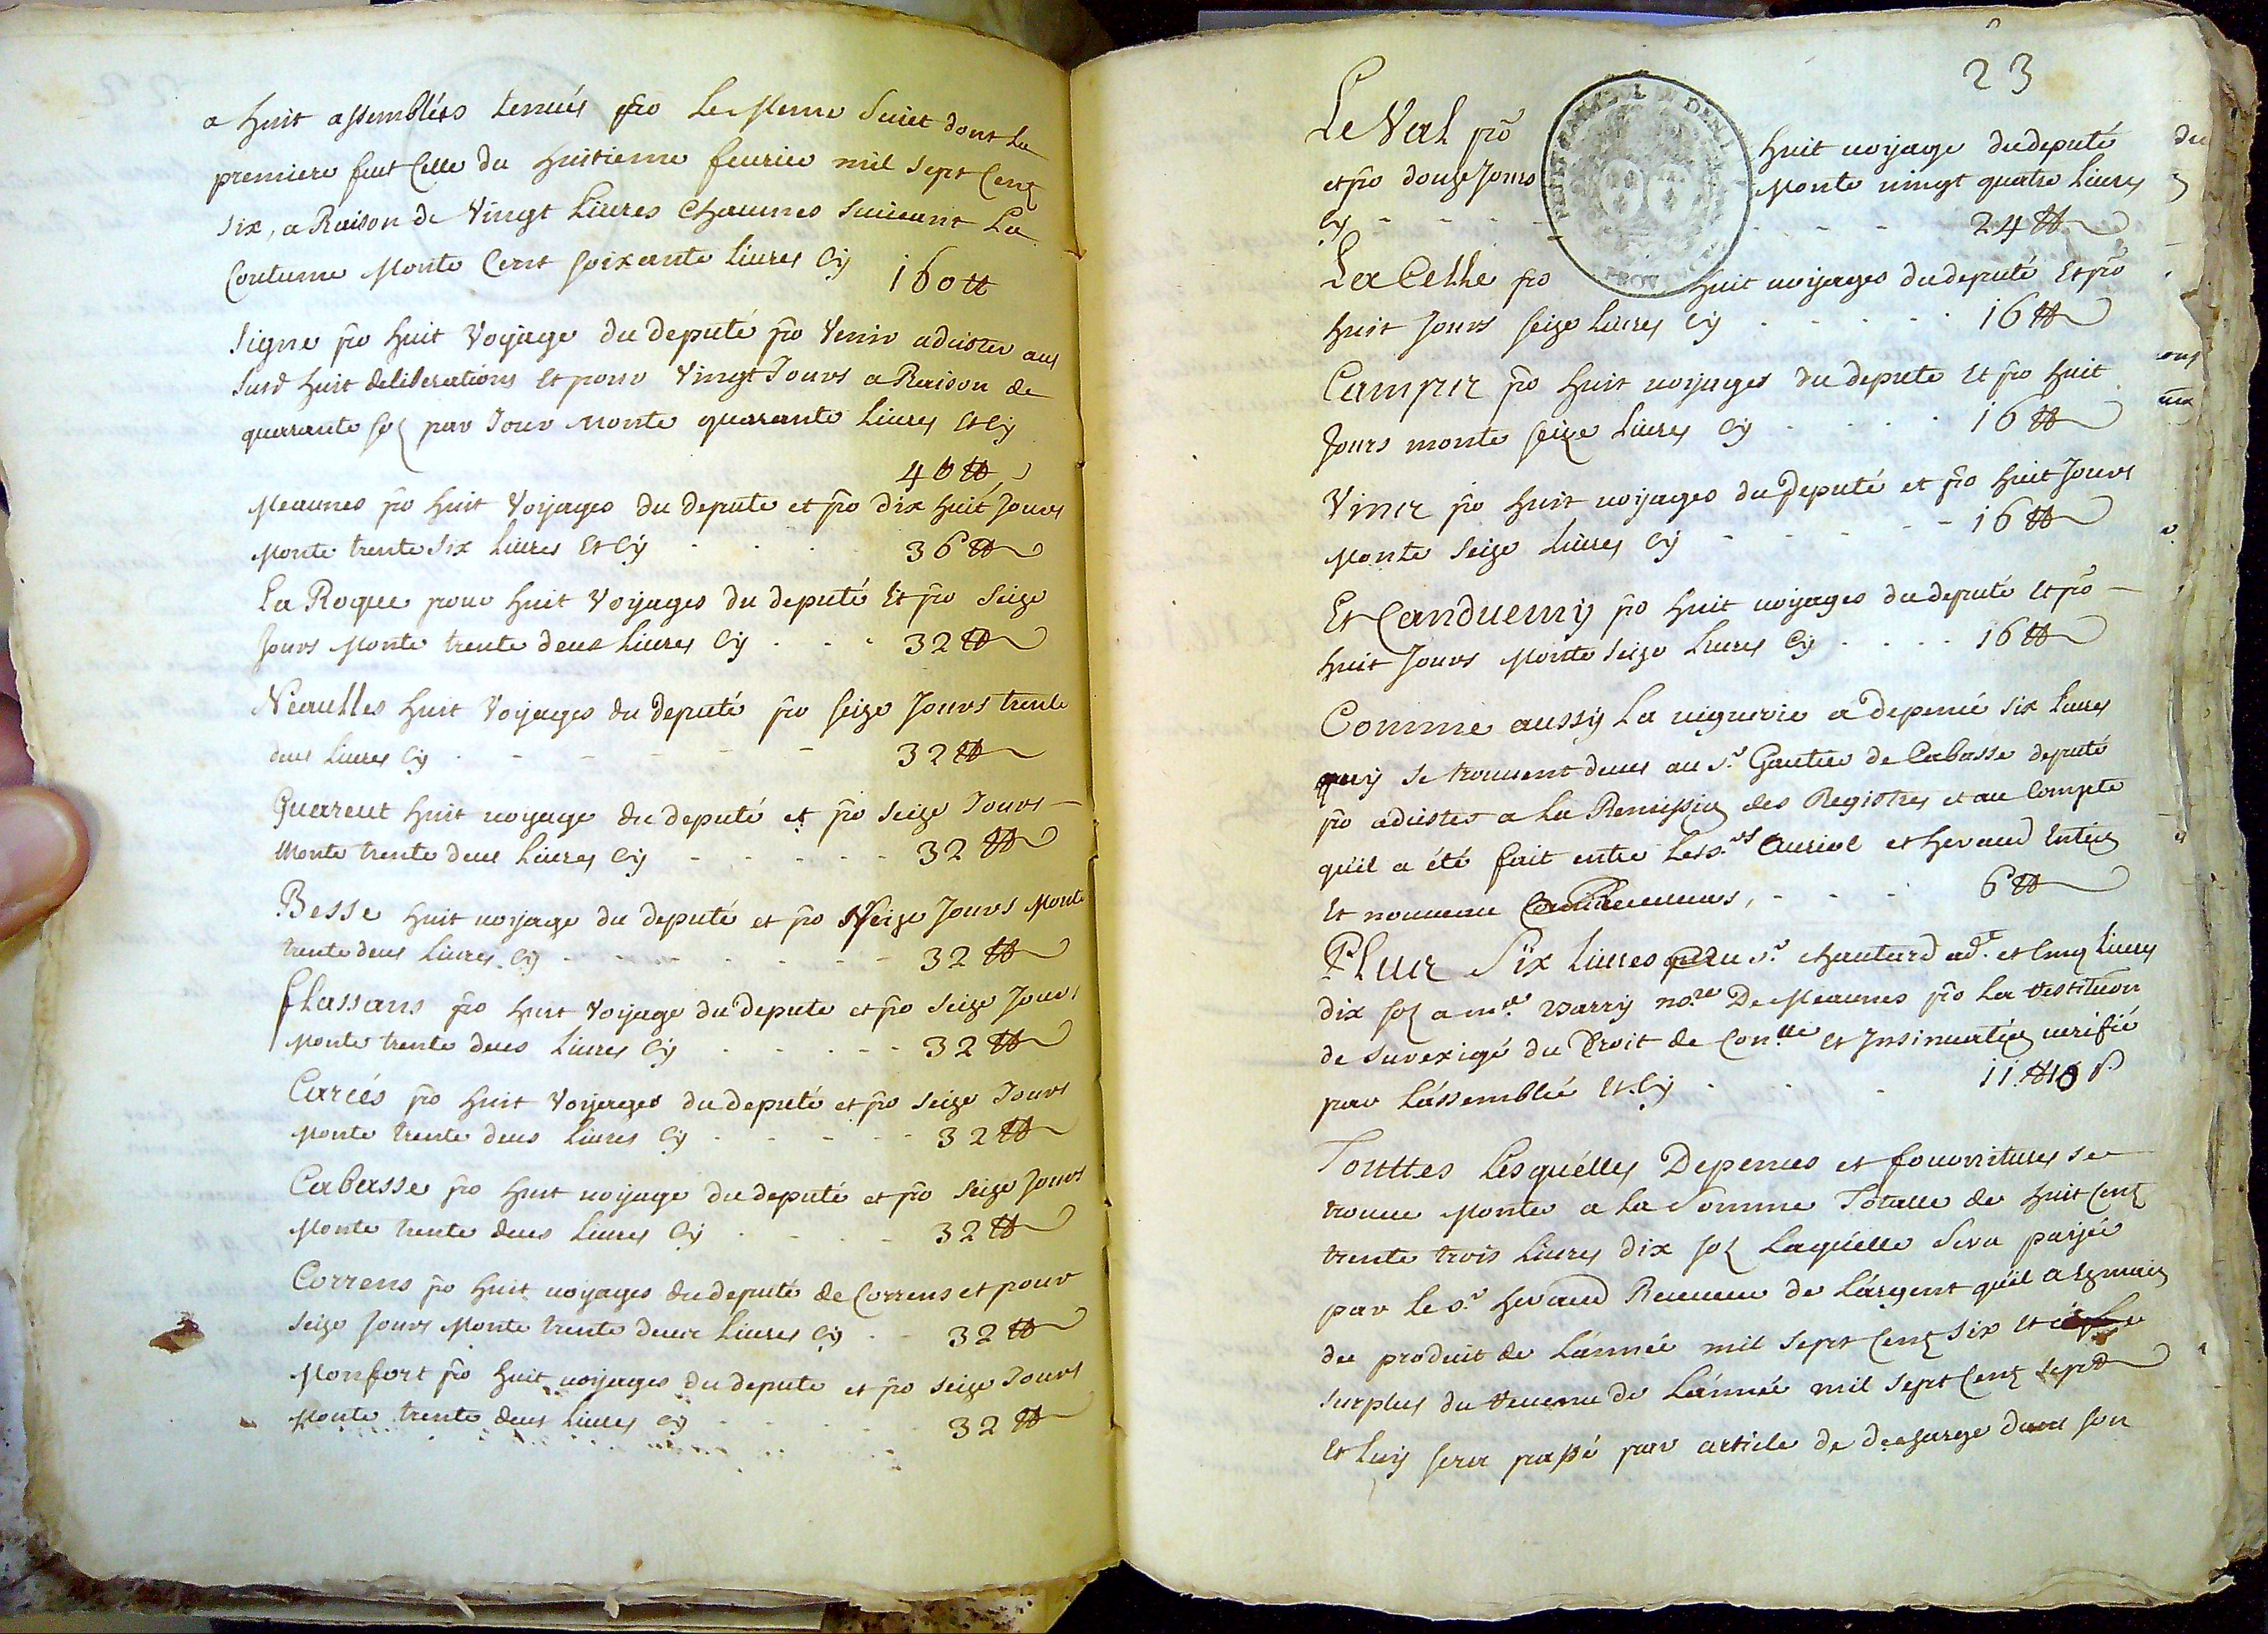 a huit assemblées tenües po le meme suiet dont la
premiere feut celle du huitieme feurier mil sept cent
six, a Raison de Vingt liures chacunes suiuant la
Coutume Monte Cent soixante liures Cy 160 tt
Signe po huit Voyage du deputé po Venir adcister aux
susd huit deliberations Et pour Vingt Jours a Raison de
quarante solz par Jour Monte quarante liures Et Cy
40 tt
Meaunes po huit Voyages du deputé et po dix huit Jours
Monte trente six liures Et Cy 36 tt
La Roque pour huit Voyages du deputé Et po seize
Jours Monte trente deux liures Cy 32 tt
Neaulles huit Voyages du deputé po seize Jours trente
deux liures Cy 32 tt
Guareut huit uoyage du deputé et po seize Jours
Monte trente deux liures Cy 32 tt
Besse huit uoyage du deputé et po seize Jours Monte
trente deux liures Cy 32 tt
flassans po huit Voyage du deputé et po seize Jours
Monte trente deux liures Cy 32 tt
Carcés po huit Voyages du deputé et po seize Jours
Monte trente deux liures Cy 32 tt
Cabasse po huit uoyage du deputé et po seize Jours
Monte trente deux liures Cy 32 tt
Correns po huit uoyages du deputé de Correns et pour
seize Jours Monte trente deux liures Cy 32 tt
Monfort po huit uoyages du deputé et po seize Jours
Monte trente deux liures Cy 32 tt
23
Le Val po huit uoyage du deputé
et po douze Jours Monte uingt quatre liures
Cy 24 tt
La Celle po huit uoyages du deputé Et po
huit Jours seize liures Cy 16 tt
Camper po huit uoyages du deputé Et po huit
Jours monte seize liures Cy 16 tt
Viner po huit uoyages du deputé et po huit Jours
Monte seize liures Cy 16 tt
Et Canduemy po huit uoyages du deputé Et po
huit Jours Monte seize liures Cy 16 tt
Comme aussy la uiguerie a depencé six liures
quy se trouuent deues au sr Gautier de Cabasse deputé
po adcister a la Remission des Registres et au Compte
qu'il a été fait entre les srs Auriol et heraud Entien
Et nouueau 6 tt
Plus Six liures du sr chautard ad.t et Cinq liures
dix solz a me Barry nore De Meaunes po la restitution
de surexigé du Droit de Con.lle et Insinuation uerifié
par L'assemblée Et Cy 11 tt 10 s
Touttes Lesquélles Depences et fournitures se
trouue Monter a la Somme Totalle de huit Cent
trente trois liures dix solz Laquélle Sera payée
par le sr heraud Receueur de L'argent qu'il a En main
du produit de L'année mil sept Cent six Et
surplus du reuenu de L'année mil sept Cent sept
Et luy sera passé par article de decharge dans son